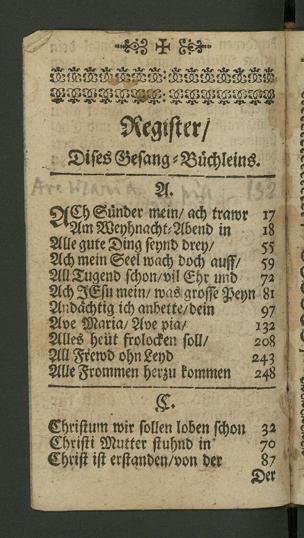 Register/
Dises Gesang-Büchleins.
Ave Maria 132
A.
ACh Sünder mein/ ach trawr 17
Am Weyhnacht-Abend in 18
Alle gute Ding seynd drey/ 55
Ach mein Seel wach doch auff/ 59
All Tugend schon/vil Ehr und 72
Ach JEsu mein/ was grosse Peyn 81
Andächtig ich anbette/dein 97
Ave Maria/ Ave pia/ 132
Alles heüt frolocken soll/ 208
All Frewd ohn Leyd 243
Alle Frommen herzu kommen 248
C.
Christum wir sollen loben schon 32
Christi Mutter stuhnd in 70
Christ ist erstanden/von der 87
Der